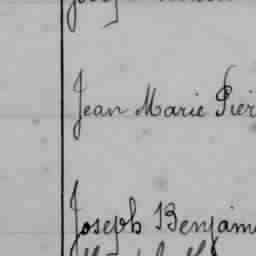 Jean Marie Pier
Joseph Benjam